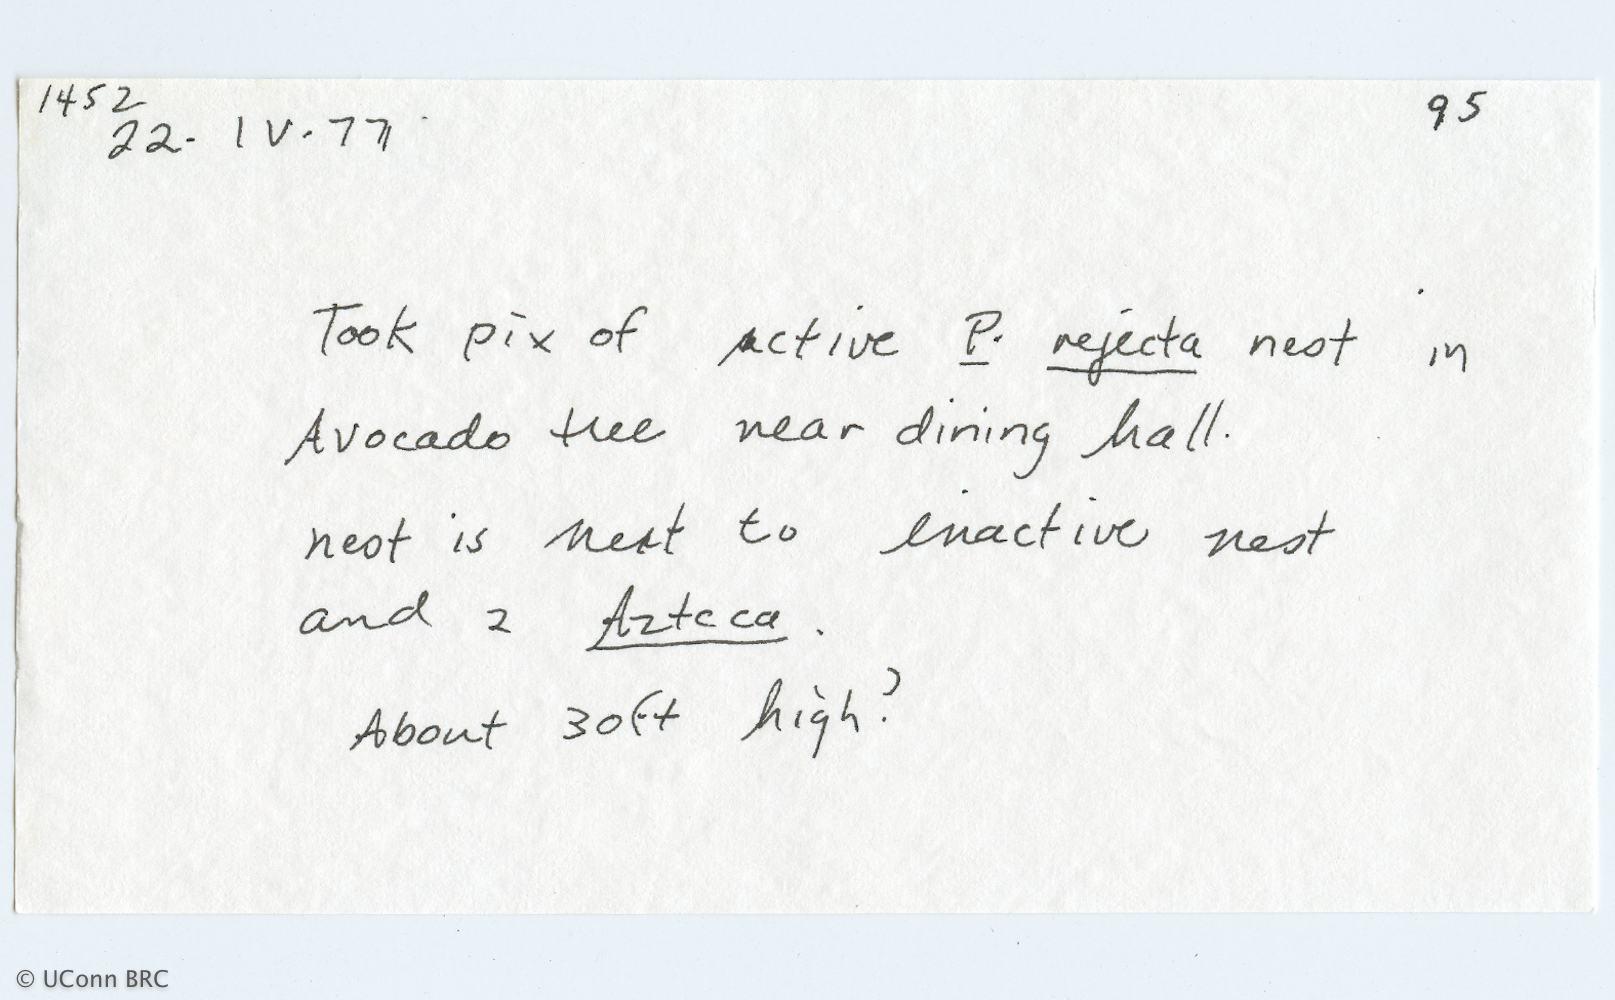 1452
95
22. IV. 77
Took pix of active P. rejecta nest in
Avocado tree near dining hall.
nest is next to inactive nest
and 2 Azteca.
About 30ft high?
© UConn BRC